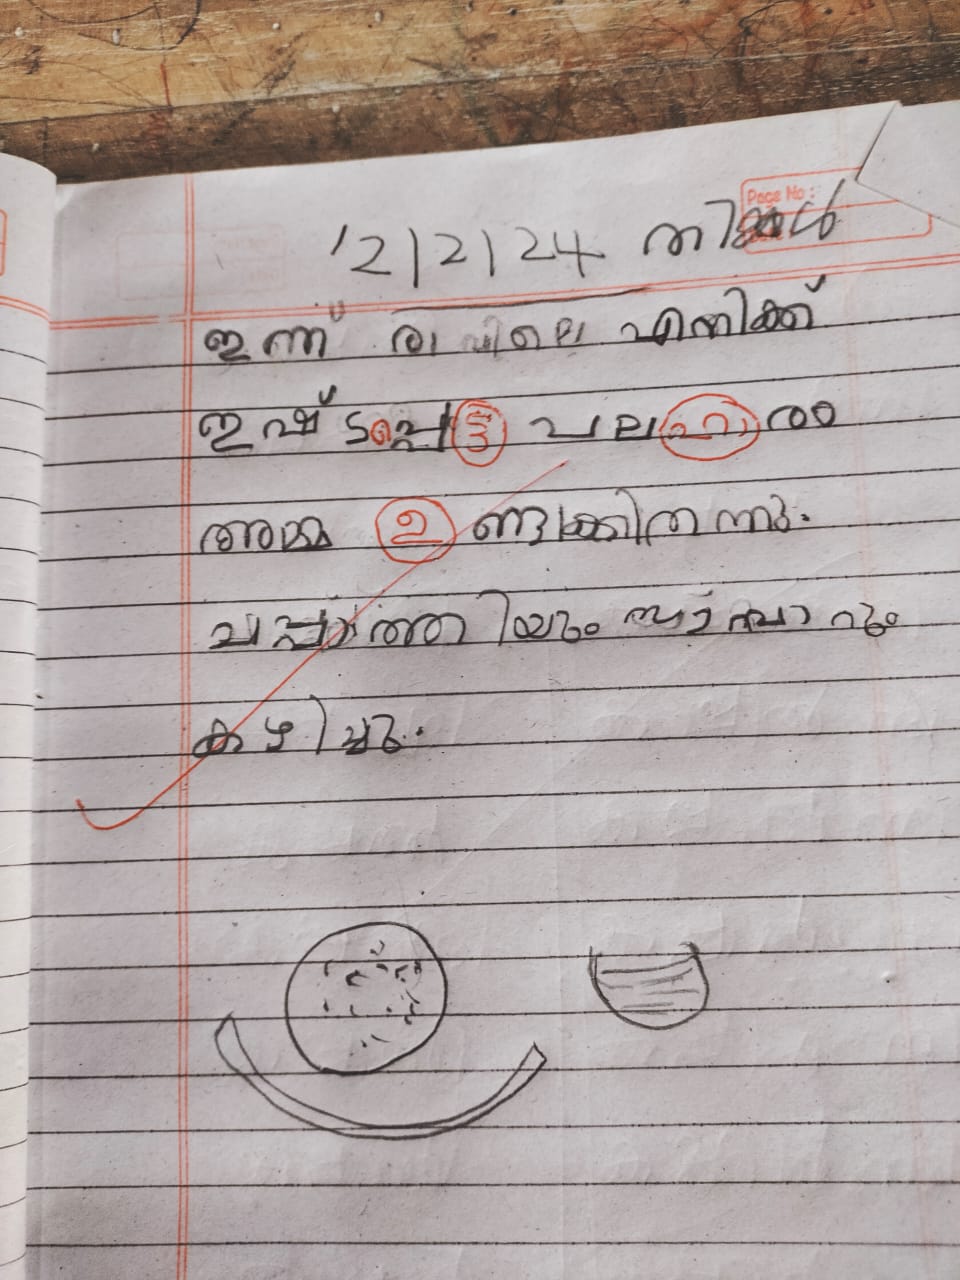 Page No :
12/2/24 തിങ്കൾ
ഇന്ന് രാവിലെ എനിക്ക്
ഇഷ്ടപ്പെട്ട പലഹാരം
അമ്മ ഉണ്ടാക്കിതന്നു.
ചപ്പാത്തിയും സാമ്പാറും
കഴിച്ചു.